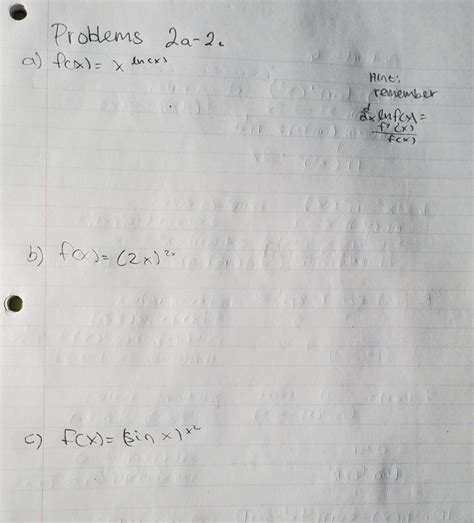 Problems 2a-2c
a) f(x) = x^ln(x)
Hint:
remember
d/dx ln f(x) =
f'(x)/f(x)
b) f(x) = (2x)^2x
c) f(x) = (sin x)^x^2